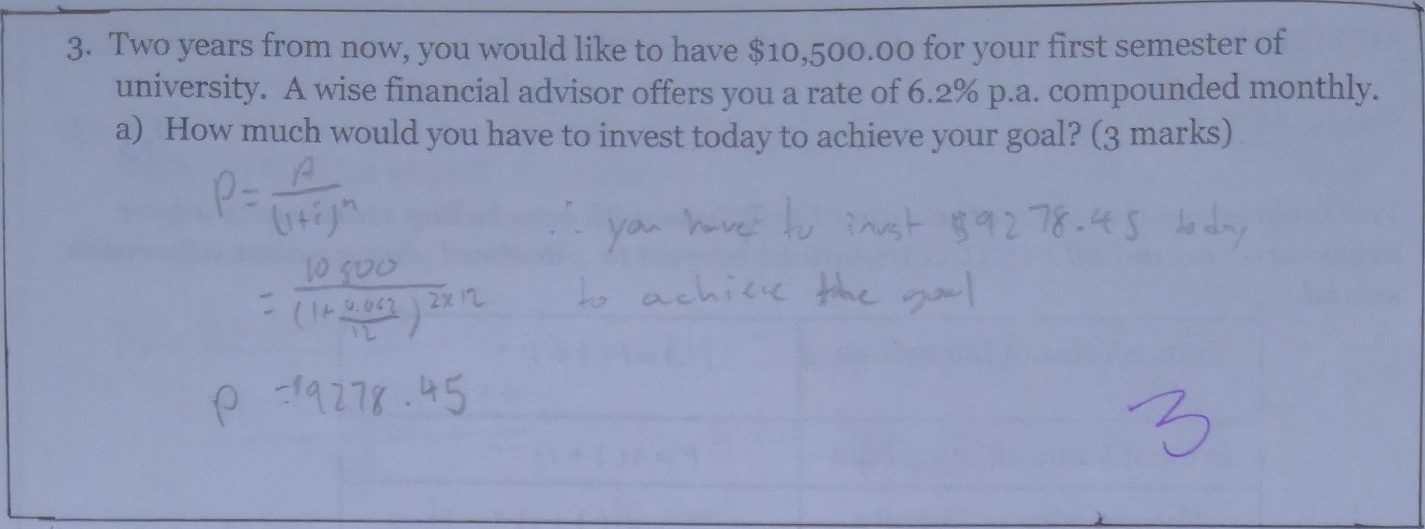 3. Two years from now, you would like to have $10,500.00 for your first semester of
university. A wise financial advisor offers you a rate of 6.2% p.a. compounded monthly.
a) How much would you have to invest today to achieve your goal? (3 marks)
P = A / (1+i)^n
= 10500 / (1 + 0.062/12)^2×12
∴ you have to invst $9278.45 today
to achieve the goal
P = $9278.45
3